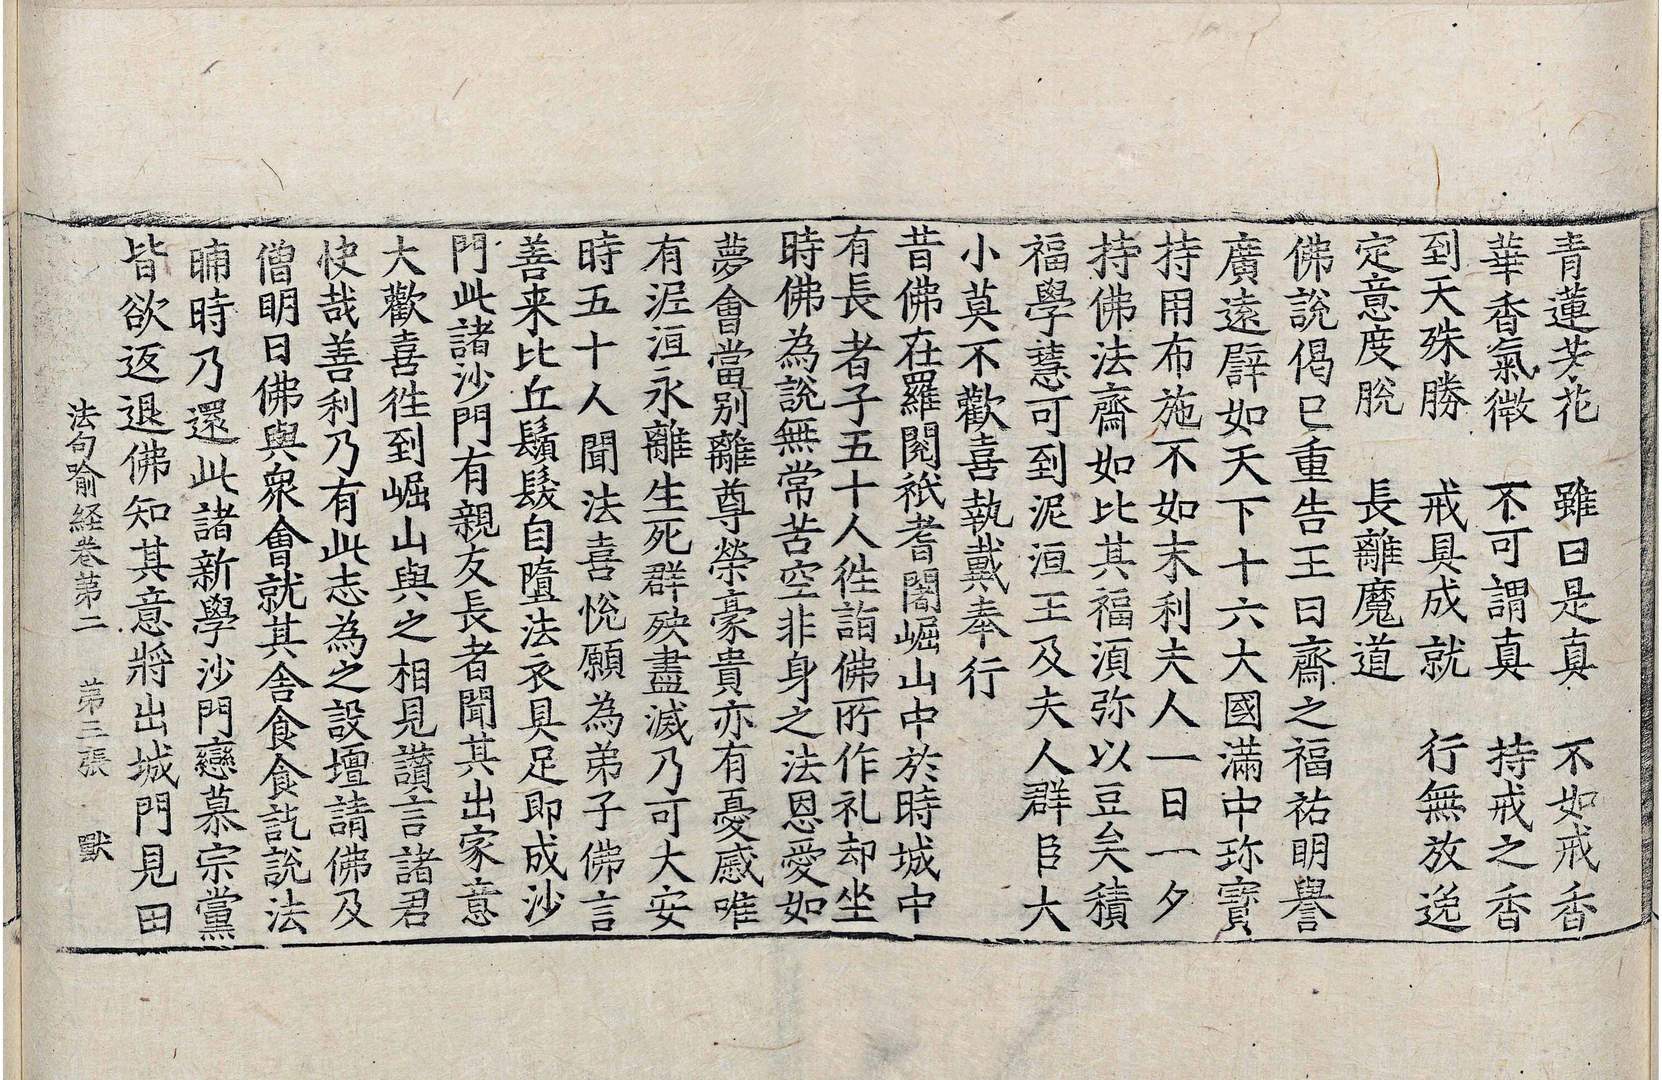 青蓮芳花　雖曰是真　不如戒香
華香氣微　不可謂真　持戒之香
到天殊勝　戒具成就　行無放逸
定意度脫　長離魔道
佛說偈已重告王曰齋之福祐明譽
廣遠譬如天下十六大國滿中珎寶
持用布施不如末利夫人一日一夕
持佛法齋如比其福湏弥以豆矣積
福學慧可到泥洹王及夫人群臣大
小莫不歡喜執戴奉行
昔佛在羅閱祇耆闍崛山中於時城中
有長者子五十人徃詣佛所作礼却坐
時佛為說無常苦空非身之法恩愛如
夢會當別離尊榮豪貴亦有憂慼唯
有泥洹永離生死群殃盡滅乃可大安
時五十人聞法喜悅願為弟子佛言
善来比丘鬚髮自墮法衣具足即成沙
門此諸沙門有親友長者聞其出家意
大歡喜徃到崛山與之相見讚言諸君
快哉善利乃有此志為之設壇請佛及
僧明日佛與衆會就其舍食食訖說法
晡時乃還此諸新學沙門戀慕宗黨
皆欲返退佛知其意將出城門見田
法句喻経卷第二　第三張　獸